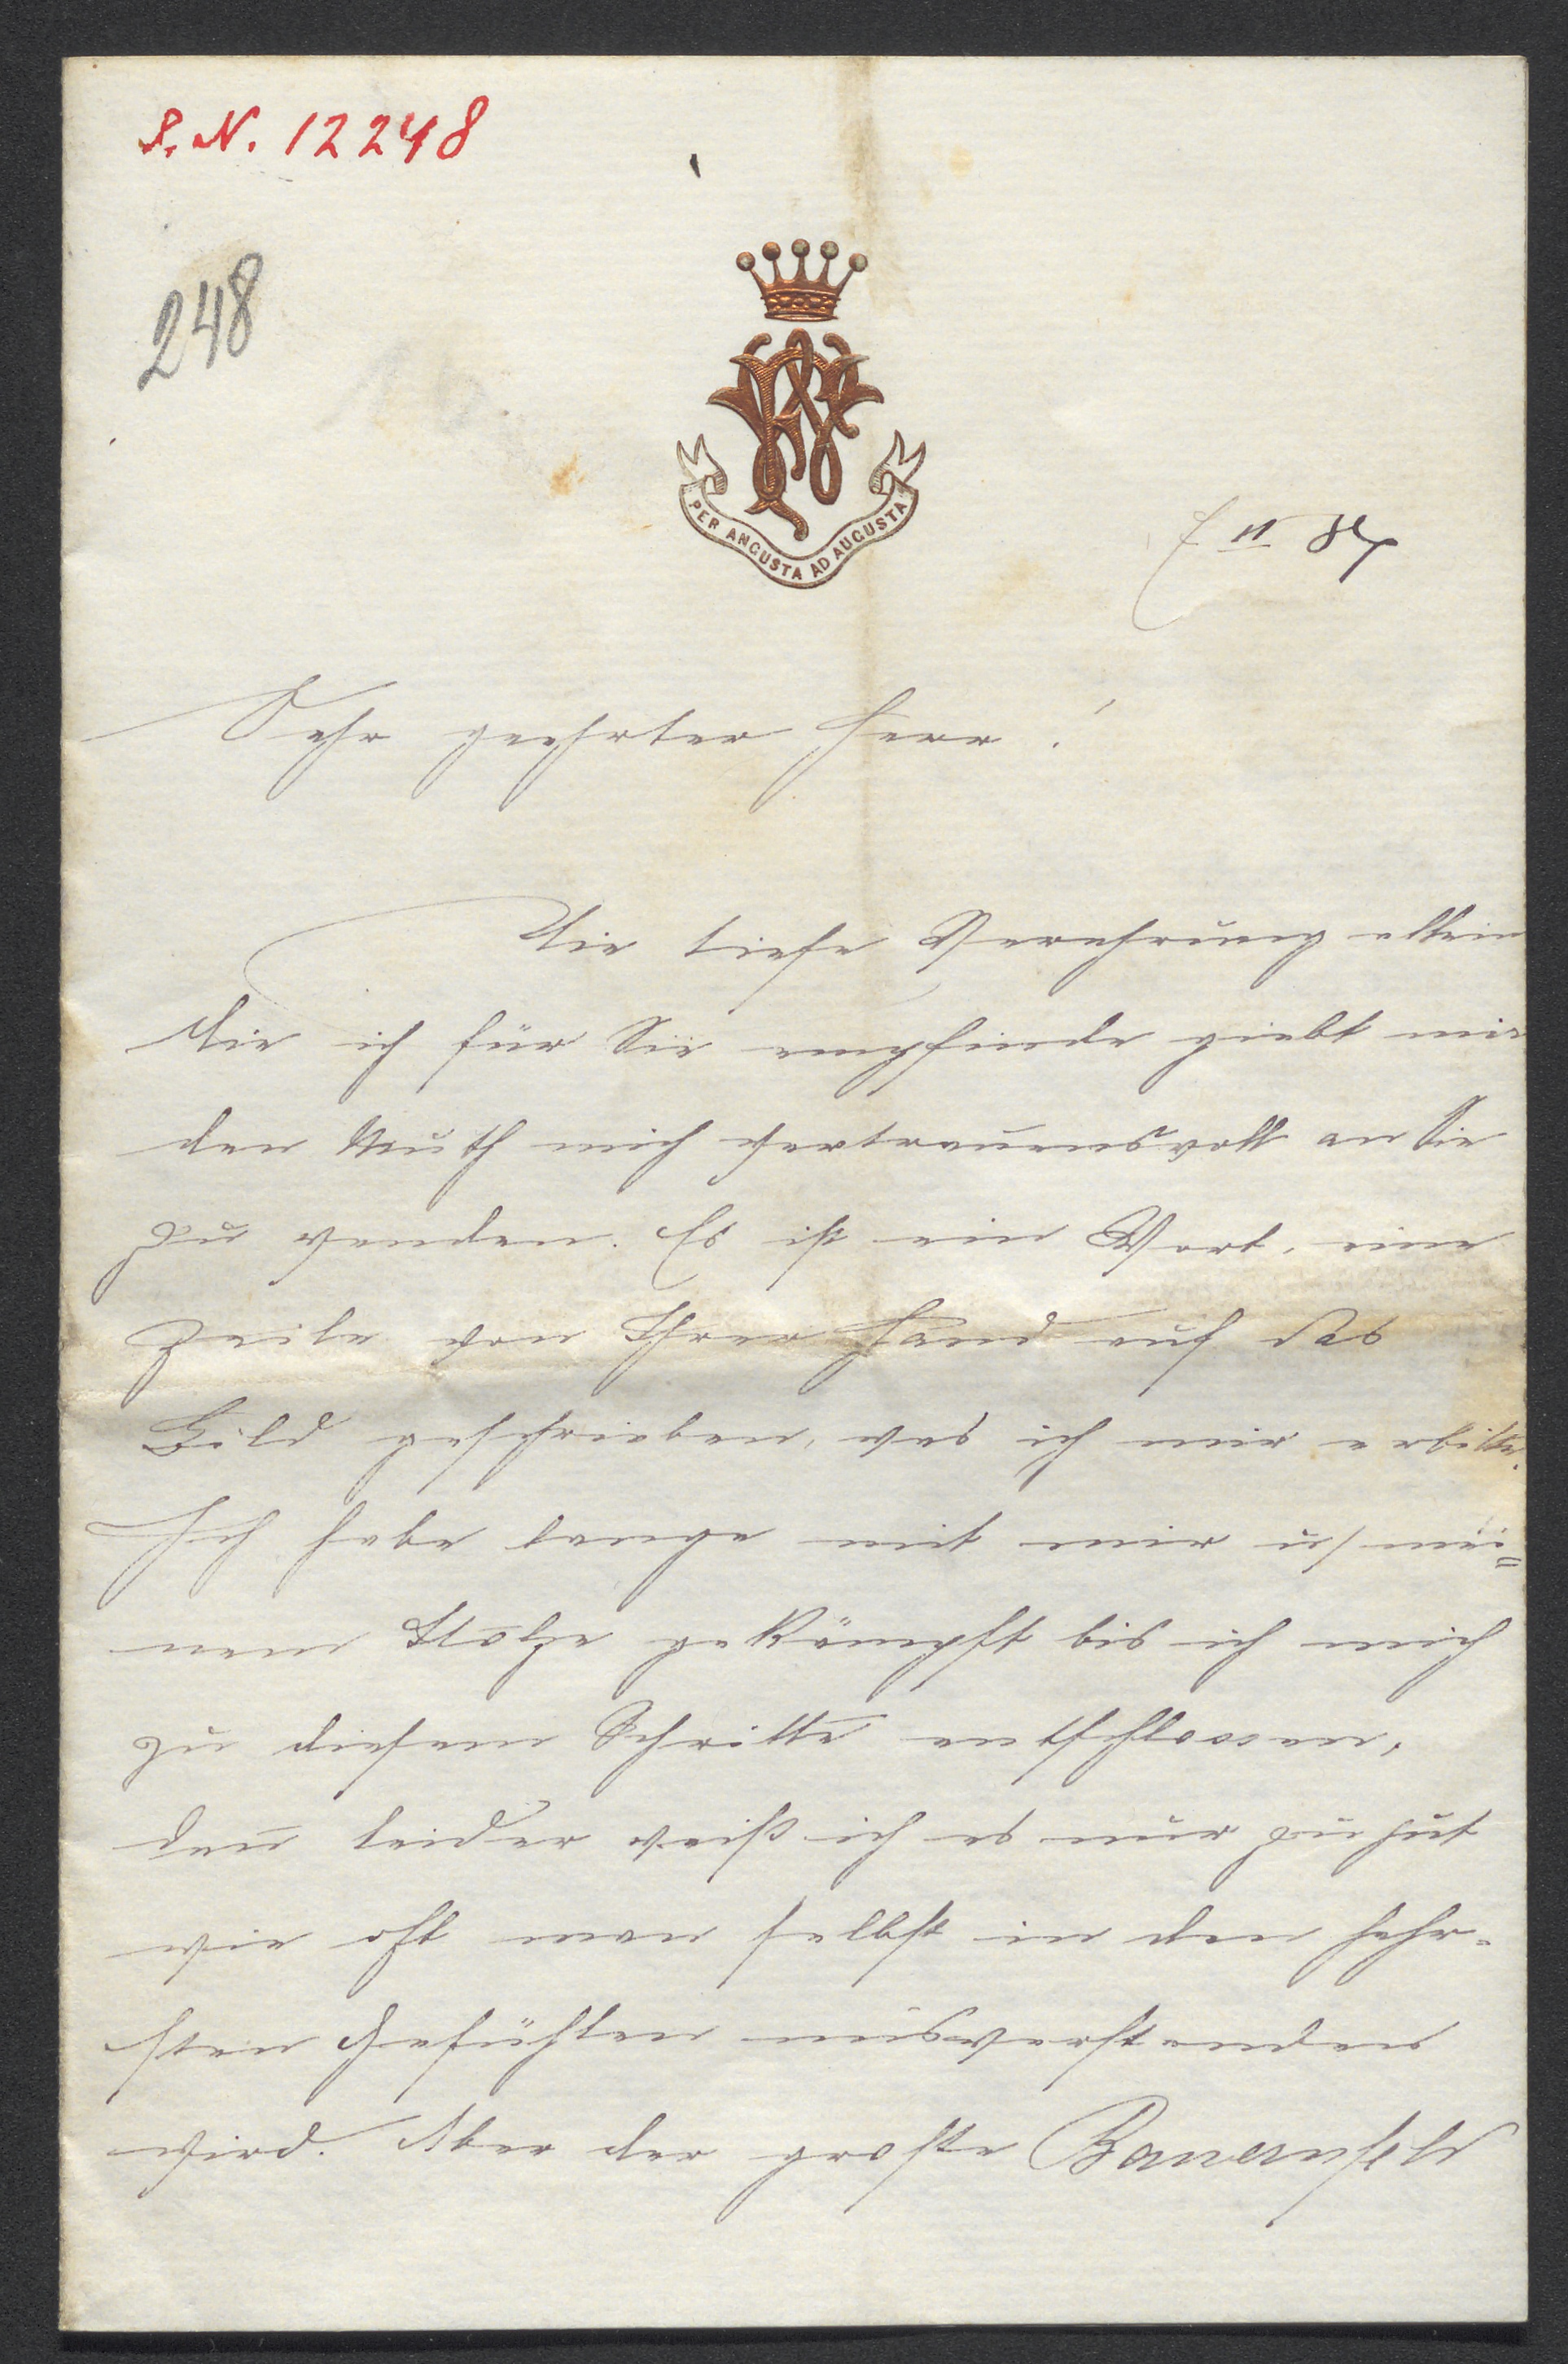 S. N. 12248
248
PER ANGUSTA AD AUGUSTA
II 84
Sehr geehrter Herr!
Die tiefe Verehrung allein
die ich für Sie empfinde giebt mir
den Muth mich vertrauensvoll an Sie
zu wenden. Es ist ein Wort, eine
Zeile von Ihrer Hand auf das
Bild geschrieben, was ich mir erbitte.
Ich habe lange mit mir u/ mei=
nem Stolze gekämpft bis ich mich
zu diesem Schritte entschlossen,
den̄ leider weiß ich es nur zu gut
wie oft man selbst in den hehr=
sten Gefühlen misverstanden
wird. Aber der große Bauernfeld